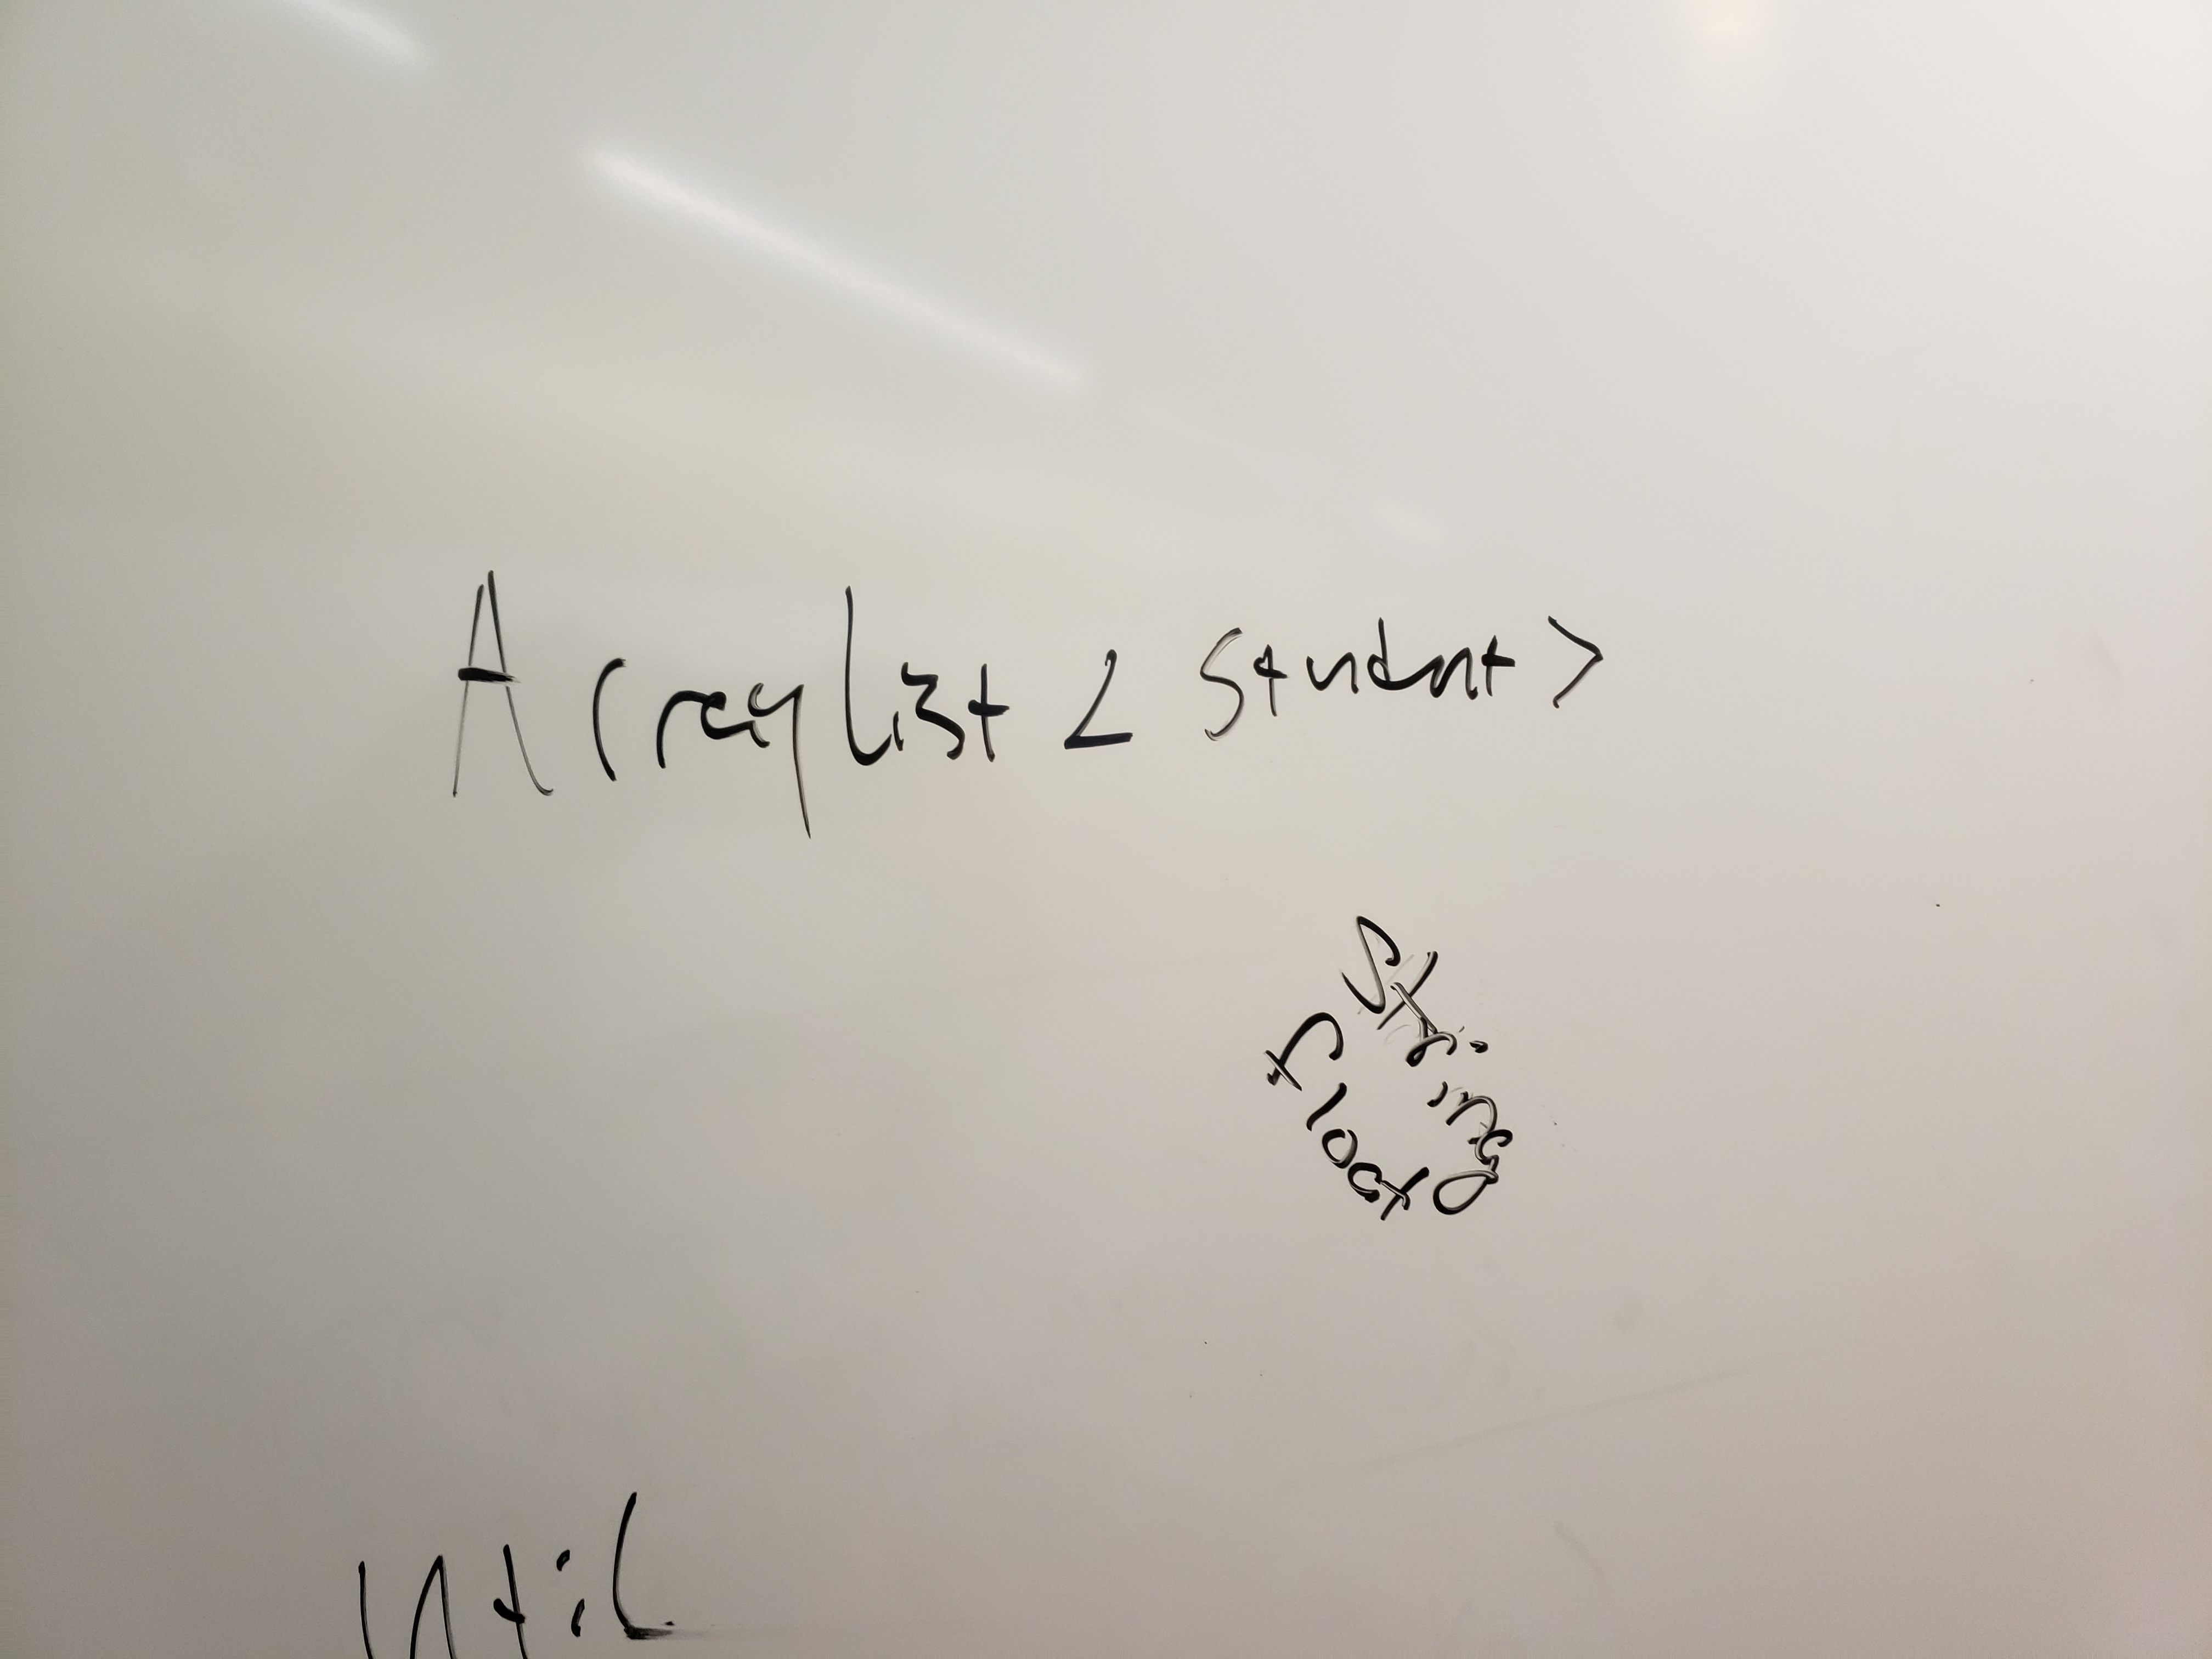 ArrayList < Student >
String
Float
Util